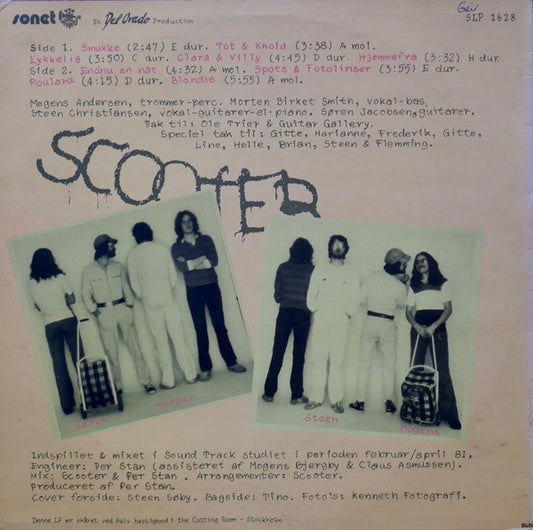 sonet En Del Orado Production
SLP 1628
Side 1. Smukke (2:47) E dur. Tot & Khold (3:38) A mol.
Lykkelig (3:50) C dur. Clara & Villy (4:45) D dur. Hjemmefra (3:32) H dur
Side 2. Endnu en nat (4:32) A mol. Spots & Fotolinser (3:55) E dur.
Poulard (4:15) D dur. Blondie (5:55) A mol.
Mogens Andersen, trommer-perc. Morten Birket Smith, vokal-bas
Steen Christiansen, vokal-guitarer-el-piano. Søren Jacobsen, guitarer.
Tak til: Ole Trier & Guitar Gallery.
Speciel tak til: Gitte, Marianne, Frederik, Gitte,
Line, Helle, Brian, Steen & Flemming.
SCOOTER
Søren
Morten
Steen
Mogens
Indspillet & mixet i Sound Track studiet i perioden februar/april 81.
Engineer: Per Stan (assisteret af Mogens Bjergby & Claus Asmussen).
Mix: Scooter & Per Stan. Arrangementer: Scooter.
Produceret af Per Stan.
Cover forside: Steen Søby. Bagside: Tino. Foto's: Kenneth Fotografi.
Denne LP er skåret ved halv hastighed i the Cutting Room - Stockholm